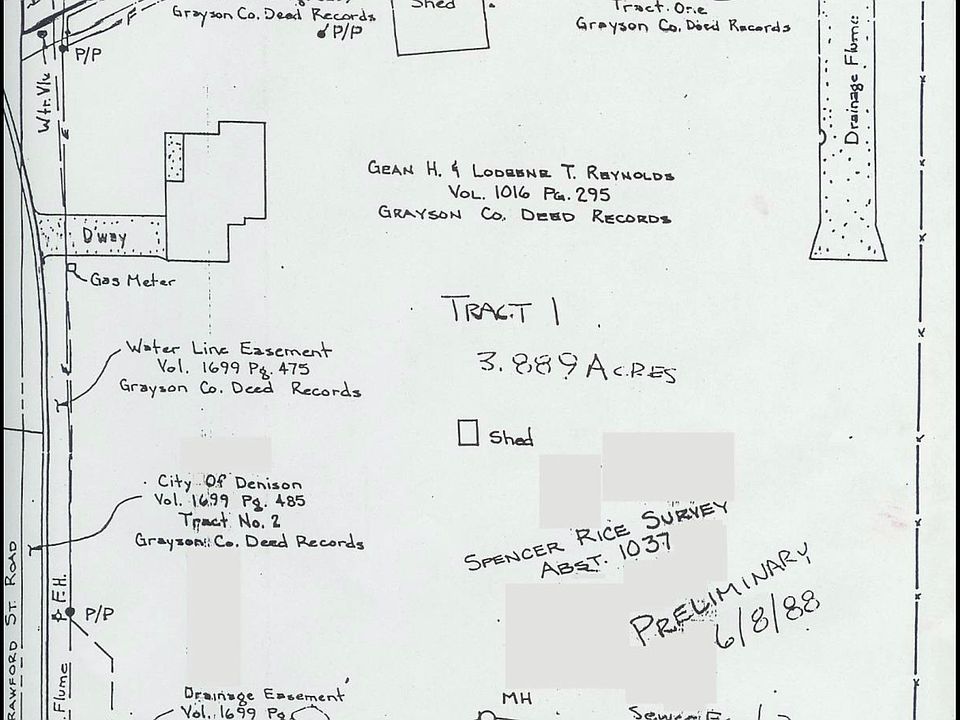 Grayson Co. Deed Records
P/P
Shed
Tract One
Grayson Co. Deed Records
Drainage Flume
P/P
Wtr. Vlv
E
GEAN H. & LODEENE T. REYNOLDS
VOL. 1016 PG. 295
GRAYSON CO. DEED RECORDS
D'way
Gas Meter
TRACT 1
3.889 ACRES
Water Line Easement
Vol. 1699 Pg. 475
Grayson Co. Deed Records
Shed
City Of Denison
Vol. 1699 Pg. 485
Tract No. 2
Grayson Co. Deed Records
SPENCER RICE SURVEY
ABST. 1037
PRELIMINARY
6/8/88
RAWFORD ST. ROAD
F.H.
P/P
Flume
Drainage Easement
Vol. 1699 Pg.
MH